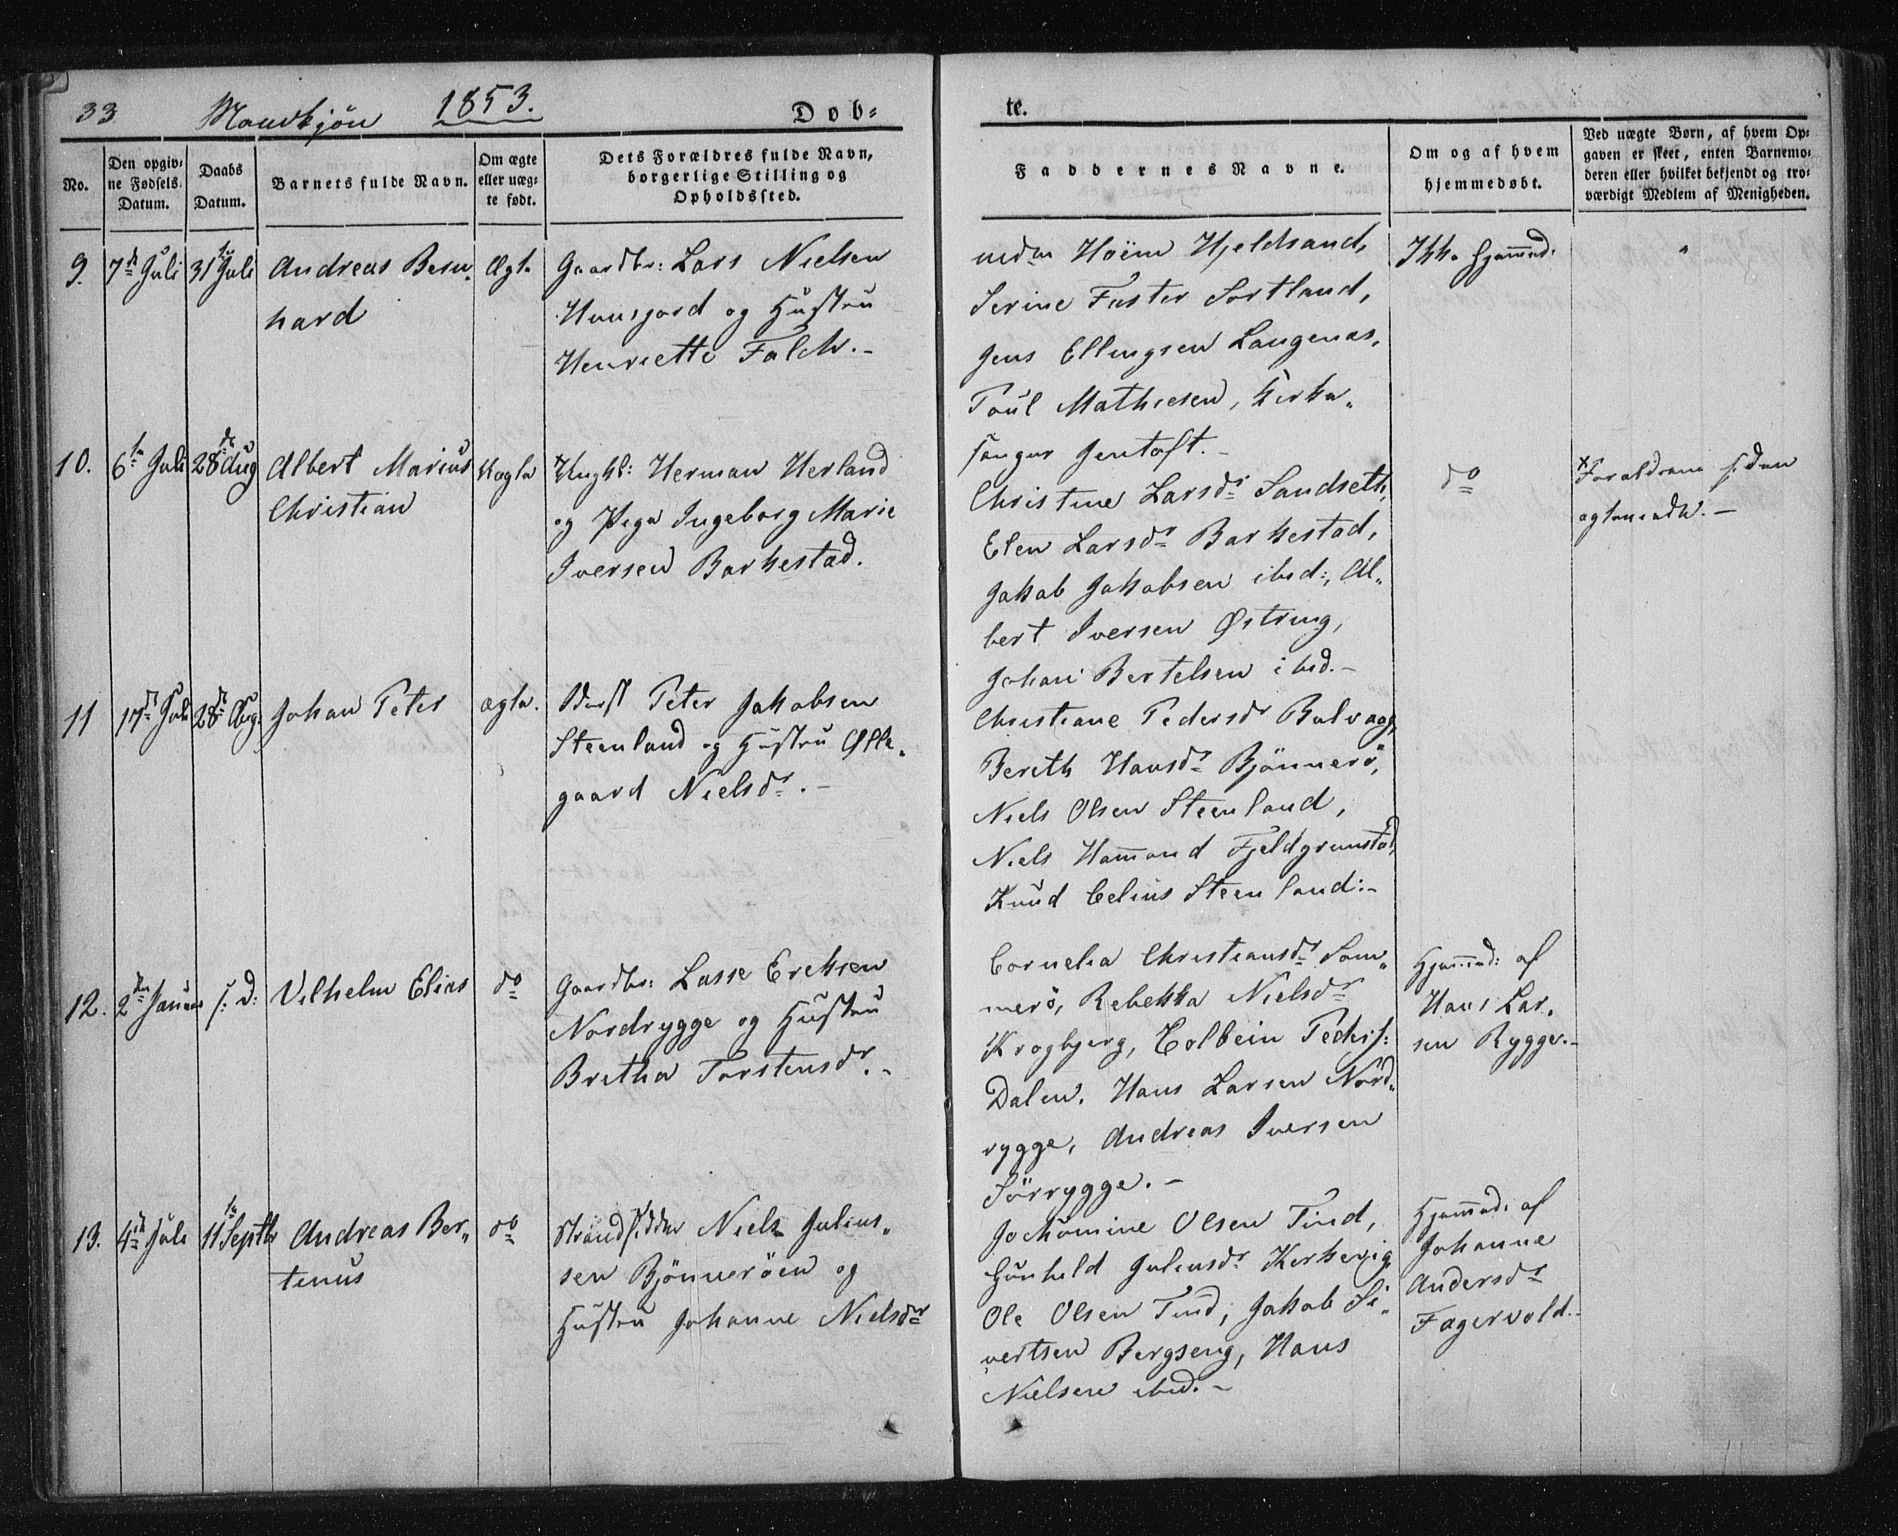 33 Mandkjön 1853. Døb-
te.
No.
Den opgiv-
ne Fødsels-
Datum.
Daabs
Datum.
Barnets fulde Navn.
Om ægte
eller uæg-
te født.
Dets Forældres fulde Navn,
borgerlige Stilling og
Opholdssted.
Faddernes Navne.
Om og af hvem
hjemmedøbt.
Ved uægte Børn, af hvem Op-
gaven er skeet, enten Barnemo-
deren eller hvilket bekjendt og tro-
værdigt Medlem af Menigheden.
9. 7de Juli 31te Juli Andreas Bern-
hard
Ægte
Gaardbr: Lars Nielsen
Huusjord og Hustru
Henriette Falch.-
Höim Hjeldsand,
Serine Faster Sortland,
Jens Ellingsen Langenæs,
Poul Mathiesen, Kirke-
sanger Jentoft.-
Ikke hjemmed:
"
10. 6te Juli 28de Aug Albert Marius
Christian
Uægte
x Ungkl: Herman Herland
og Pige Ingeborg Marie
Iversen Barkestad.
Christine Larsdr Sandseth,
Elen Larsdr Barkestad,
Jakob Jakobsen ibid:, Al-
bert Iversen Østring,
Johan Bertelsen ibid.-
do
x Forældrene siden
ægteviede.-
11 17de Juli 28de Aug. Johan Peter
ægte.
Peter Jakobsen
Steenland og Hustru Olle-
gaard Nielsdr.-
Christiane Pedersdr Balvaag,
Bereth Hansdr Bjönnerö,
Niels Olsen Steenland,
Niels Hammond Fjeldgrunstad,
Knud Celius Steenland:-
12. 2den Januar s: d: Vilhelm Elias
do
Gaardbr: Lasse Ereksen
Nordrygge og Hustru
Bretha Torstensdr.-
Cornelia Christiansdr Som-
merö, Rebekka Nielsdr
Krogbjerg, Colbein Peders:
Dalen, Hans Larsen Nord-
rygge, Andreas Iversen
Sörrygge.-
Hjemmed: af
Hans Lar-
sen Rygge.-
13. 4de Juli 11te Septbr Andreas Ber-
tinus
do
Strandsidder Niels Julius-
sen Bjönnröen og
Hustru Johanne Nielsdr
Jochomine Olsen Tind,
Gunheld Juliusdr Kerkevig,
Ole Olsen Tind, Jakob Si-
vertsen Bergseng, Hans
Nielsen ibid.-
Hjemmed: af
Johanne
Andersdr
Fagervold.-